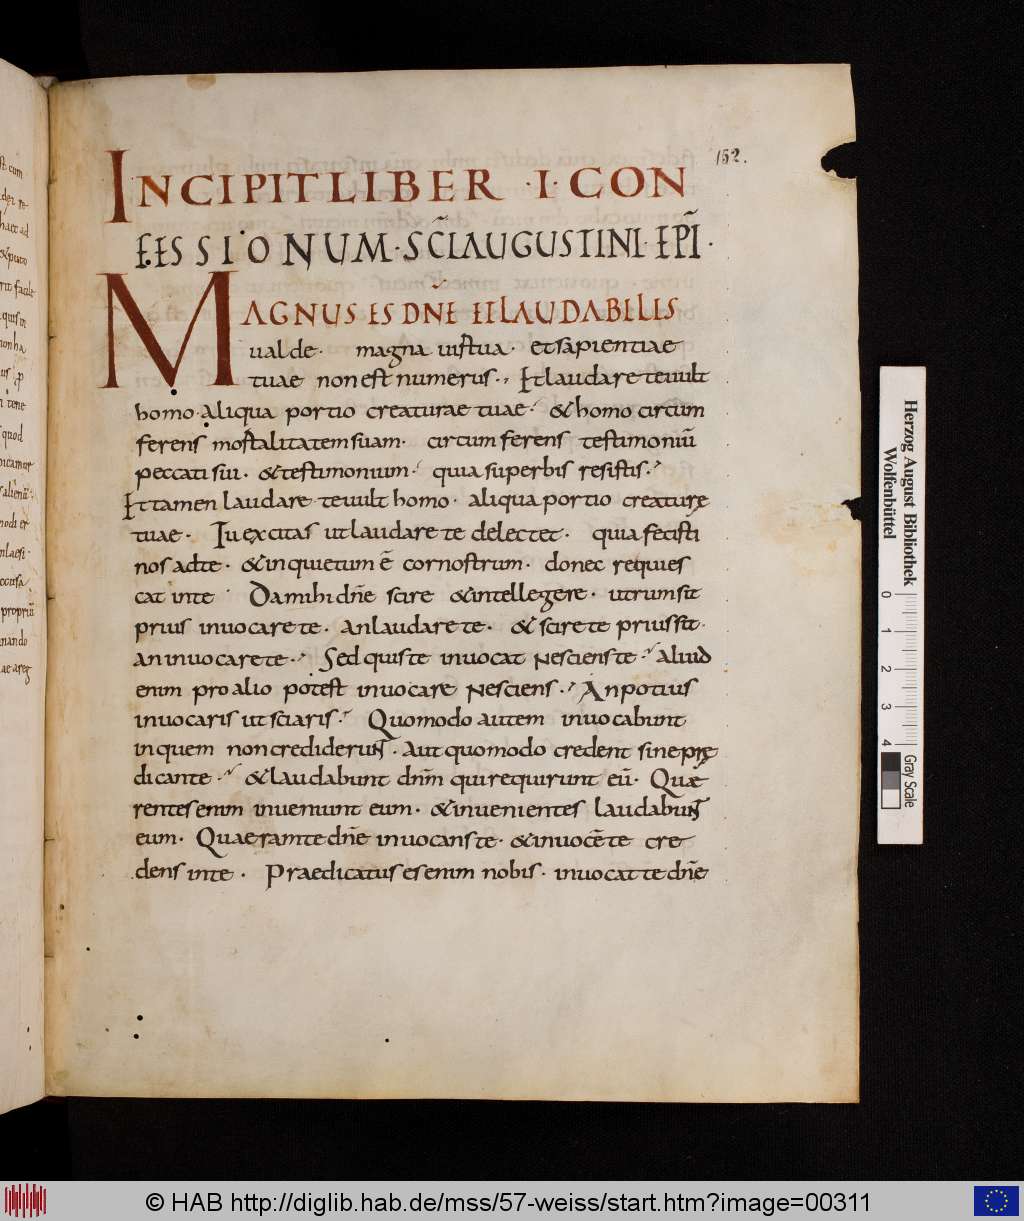 152.
INCIPIT LIBER · I · CON
FESSIONUM · SC̄I AUGUSTINI · EPĪ ·
MAGNUS ES DN̄E ET LAUDABILIS
ualde · magna uirtua · et sapientiae
tuae non est numerus · Et laudare te uult
homo · aliqua portio creaturae tuae · & homo circum
ferens mortalitatem suam · circum ferens testimoniū
peccati sui · & testimonium · quia superbis resistis ·
Et tamen laudare te uult homo · aliqua portio creaturę
tuae · Tu excitas ut laudare te delectet · quia fecisti
nos ad te · & inquietum ē cor nostrum · donec requies
cat in te · Da mihi dn̄e scire & intellegere · utrum sit
prius inuocare te · an laudare te · & scire te prius sit ·
an inuocare te · Sed quis te inuocat nesciens te · aliud
enim pro alio potest inuocare nesciens · An potius
inuocaris ut sciaris · Quomodo autem inuocabunt
in quem non crediderunt · Aut quomodo credent sine prę
dicante · & laudabunt dnm̄ qui requirunt eū · Quae
rentes enim inueniunt eum · & inuenientes laudabunt
eum · Quaeram te dn̄e inuocans te · & inuocē te cre
dens in te · Praedicatus es enim nobis · inuocat te dn̄e
Herzog August Bibliothek
Wolfenbüttel
0 1 2 3 4
Gray Scale
© HAB http://diglib.hab.de/mss/57-weiss/start.htm?image=00311